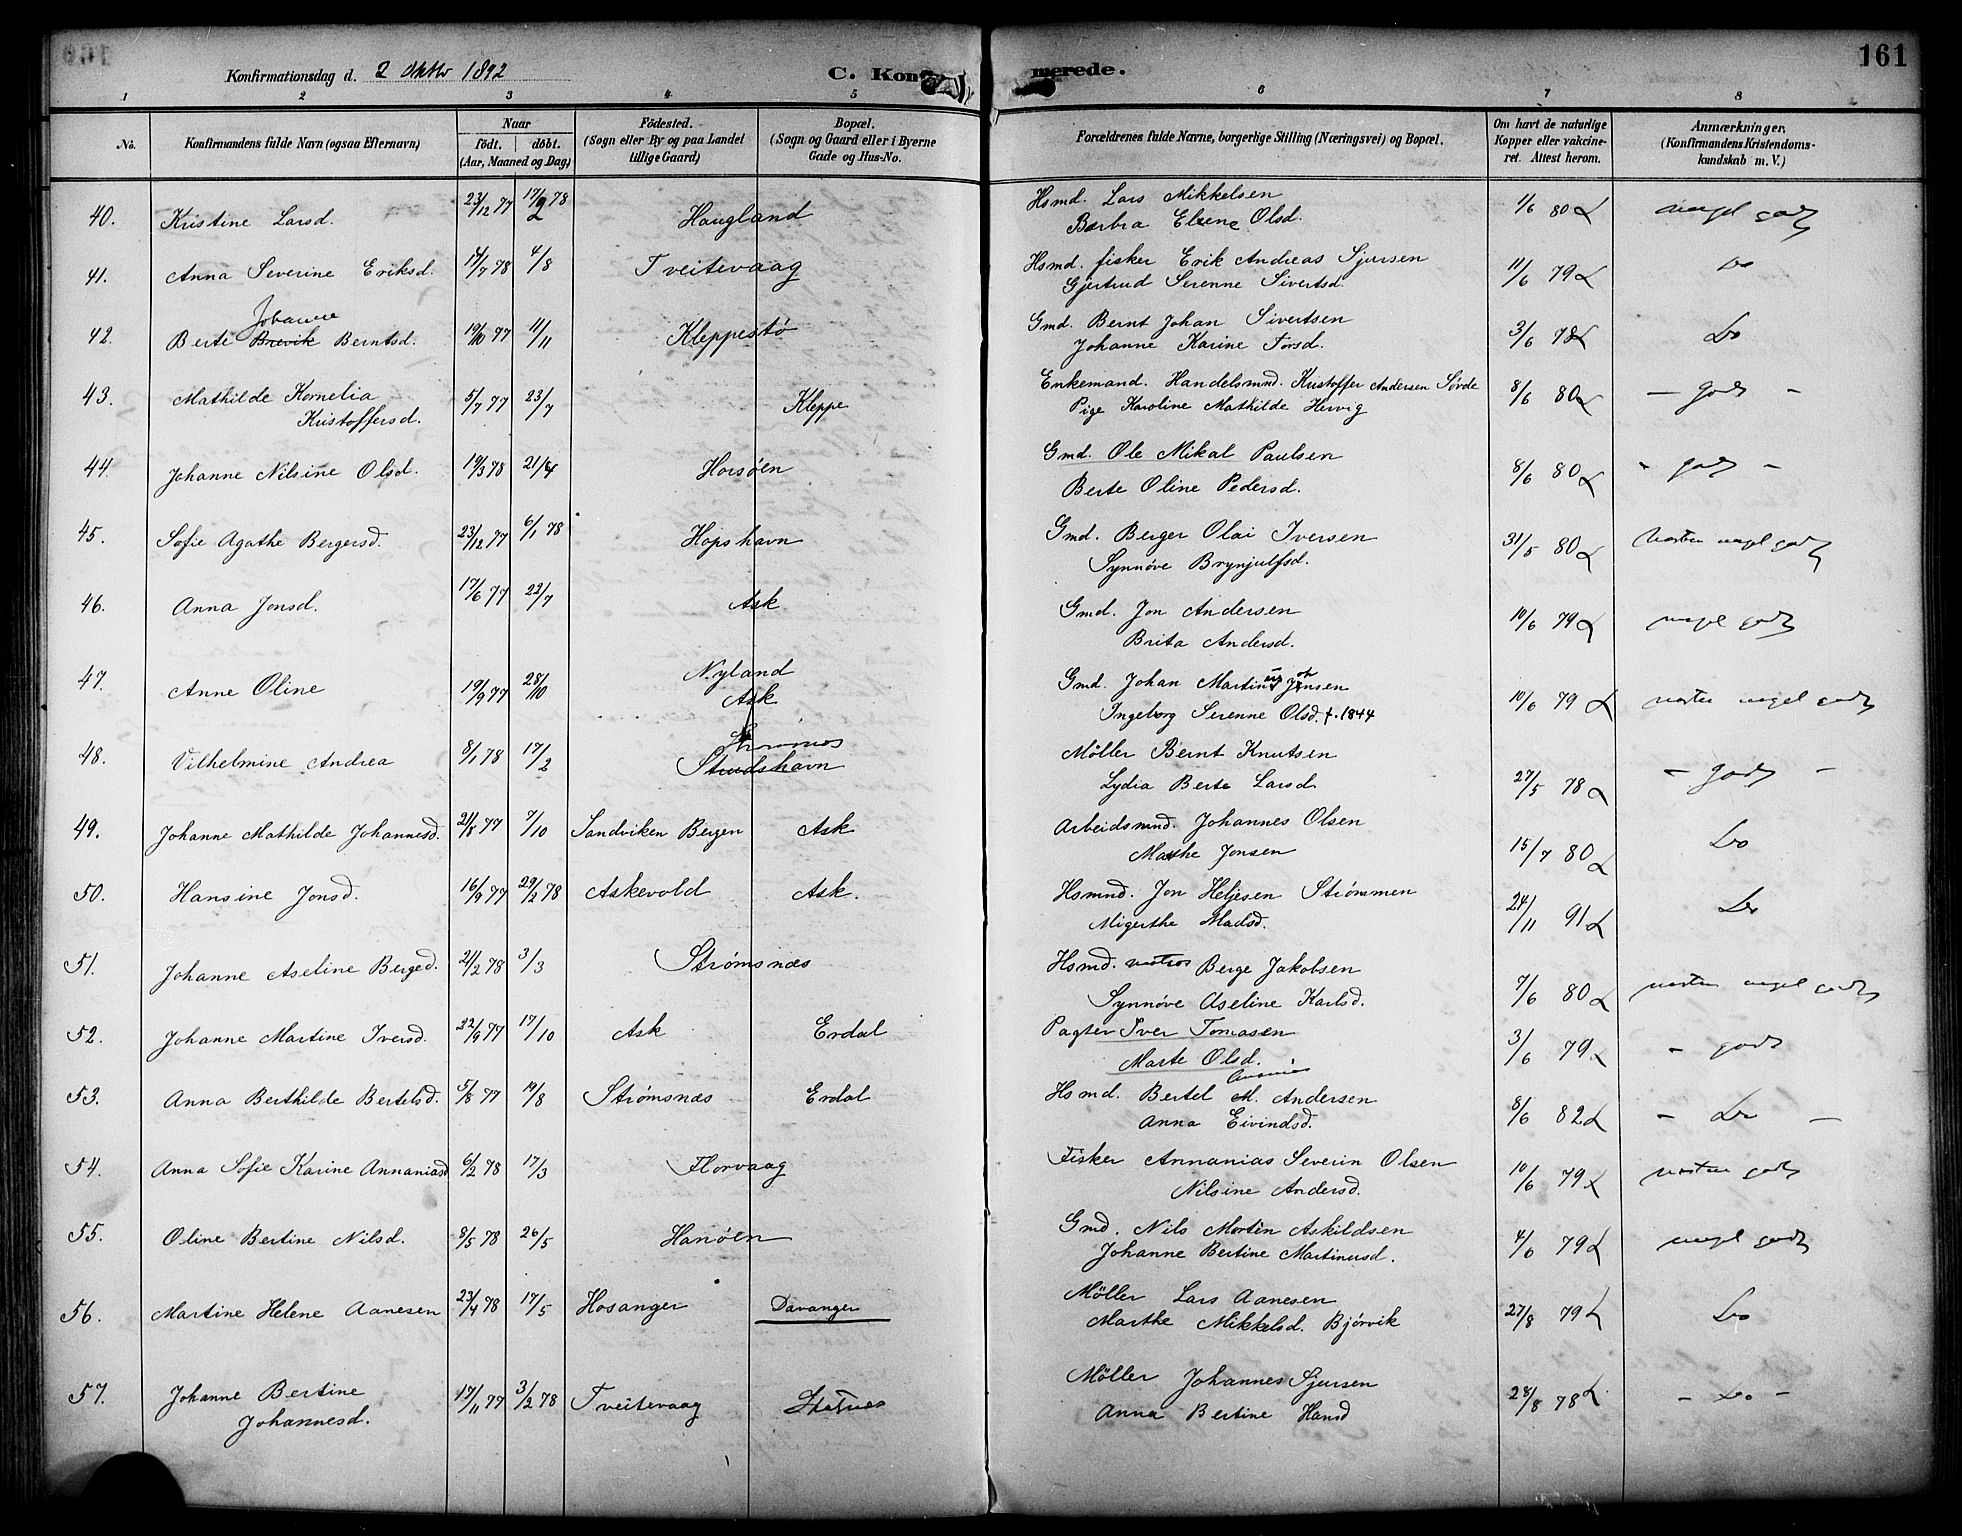 161
Konfirmationsdag d. 2 Oktbr 1892
C. Kon merede.
1 2 3 4 5 6 7 8
No.
Konfirmandens fulde Navn (ogsaa Efternavn)
Naar
födt. döbt.
(Aar, Maaned og Dag)
Födested.
(Sogn eller By og paa Landet
tillige Gaard)
Bopæl.
(Sogn og Gaard eller i Byerne
Gade og Hus-No.
Forældrenes fulde Navne, borgerlige Stilling (Næringsvei) og Bopæl.
Om havt de naturlige
Kopper eller vakcine-
ret. Attest herom.
Anmærkninger.
(Konfirmandens Kristendoms-
kundskab m. V.)
40. Kristine Larsd. 23/12 77 17/2 78 Haugland Hsmd. Lars Mikkelsen 1/6 80 meget godt
Barbra Elene Olsd.
41. Anna Severine Eriksd. 17/7 78 4/8 Tveitevaag Hsmd. fisker Erik Andreas Sjursen 11/6 79 Do
Gjertrud Serenne Sivertsd.
Johanne
42. Berte Brevik Berntsd. 19/10 77 11/11 Kleppestø Gmd. Bernt Johan Sivertsen 3/6 78 Do
Johanne Karine Torsd.
43. Mathilde Kornelia 5/7 77 23/7 Kleppe Enkemand. Handelsmnd. Kristoffer Andersen Søvde 8/6 80 - godt -
Kristoffersd. Pige Karoline Mathilde Hervig
44. Johanne Nilsine Olsd. 19/3 78 21/4 Horsöen Gmd. Ole Mikal Paulsen 8/6 80 - godt -
Berte Oline Pedersd.
45. Sofie Agathe Bergersd. 23/12 77 6/1 78 Hopshavn Gmd. Berger Olai Iversen 31/5 80 næsten meget godt
Synnöve Brynjulfsd.
46. Anna Jonsd. 17/6 77 22/7 Ask Gmd. Jon Andersen 10/6 79 meget godt
Brita Andersd.
47. Anne Oline 19/9 77 28/10 Nyland Gmd. Johan Martin Jensen 10/6 79 næsten meget godt
Ask Ingeborg Serenne Olsd. f. 1844
Strömsnes
48. Vilhelmine Andrea 8/1 78 17/2 Strudshavn Möller Bernt Knutsen 27/5 78 - godt -
Lydia Berte Larsd.
49. Johanne Mathilde Johannesd. 21/8 77 7/10 Sandviken Bergen Ask Arbeidsmnd. Johannes Olsen 15/7 80 Do
Marthe Jonsen
50. Hansine Jonsd. 16/9 77 29/2 78 Askevold Ask. Hsmnd. Jon Heljesen Strömmen 24/11 91 Do
Migerthe Madsd.
51. Johanne Aseline Berged. 21/2 78 3/3 Strømsnæs Hsmd. matros Berge Jakobsen 7/6 80 næsten meget godt
Synnöve Aseline Karlsd.
52. Johanne Martine Iversd. 22/9 77 17/10 Ask Erdal Pagter Iver Tomasen 3/6 79 - godt
Marte Olsd.
53. Anna Berthilde Bertelsd. 5/8 77 19/8 Strømsnæs Erdal Hsmd. Bertel M. Andersen 8/6 82 - Do -
Anna Eivindsd.
54. Anna Sofie Karine Annaniasd 6/2 78 17/3 Florvaag Fisker Annanias Severin Olsen 10/6 79 næsten godt
Nilsine Andersd.
55. Oline Bertine Nilsd. 8/5 78 26/5 Hanöen Gmd. Nils Morten Askildsen 4/6 79 meget godt
Johanne Bertine Martinusd.
56. Martine Helene Aanesen 23/4 78 17/5 Hosanger Davanger Möller Lars Aanesen 27/8 79 Do
Marthe Mikkelsd. Bjørvik
57. Johanne Bertine 17/11 77 3/2 78 Tveitevaag Möller Johannes Sjursen 28/8 78 - Do -
Johannesd. Anna Bertine Hansd